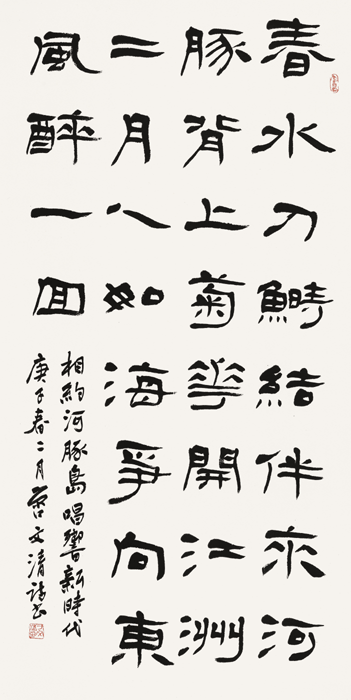 春水刀鰣結伴來河
豚背上菊華開江洲
二月人如海爭向東
風醉一回
相約河豚島唱響新時代
庚子春二月文清詩書